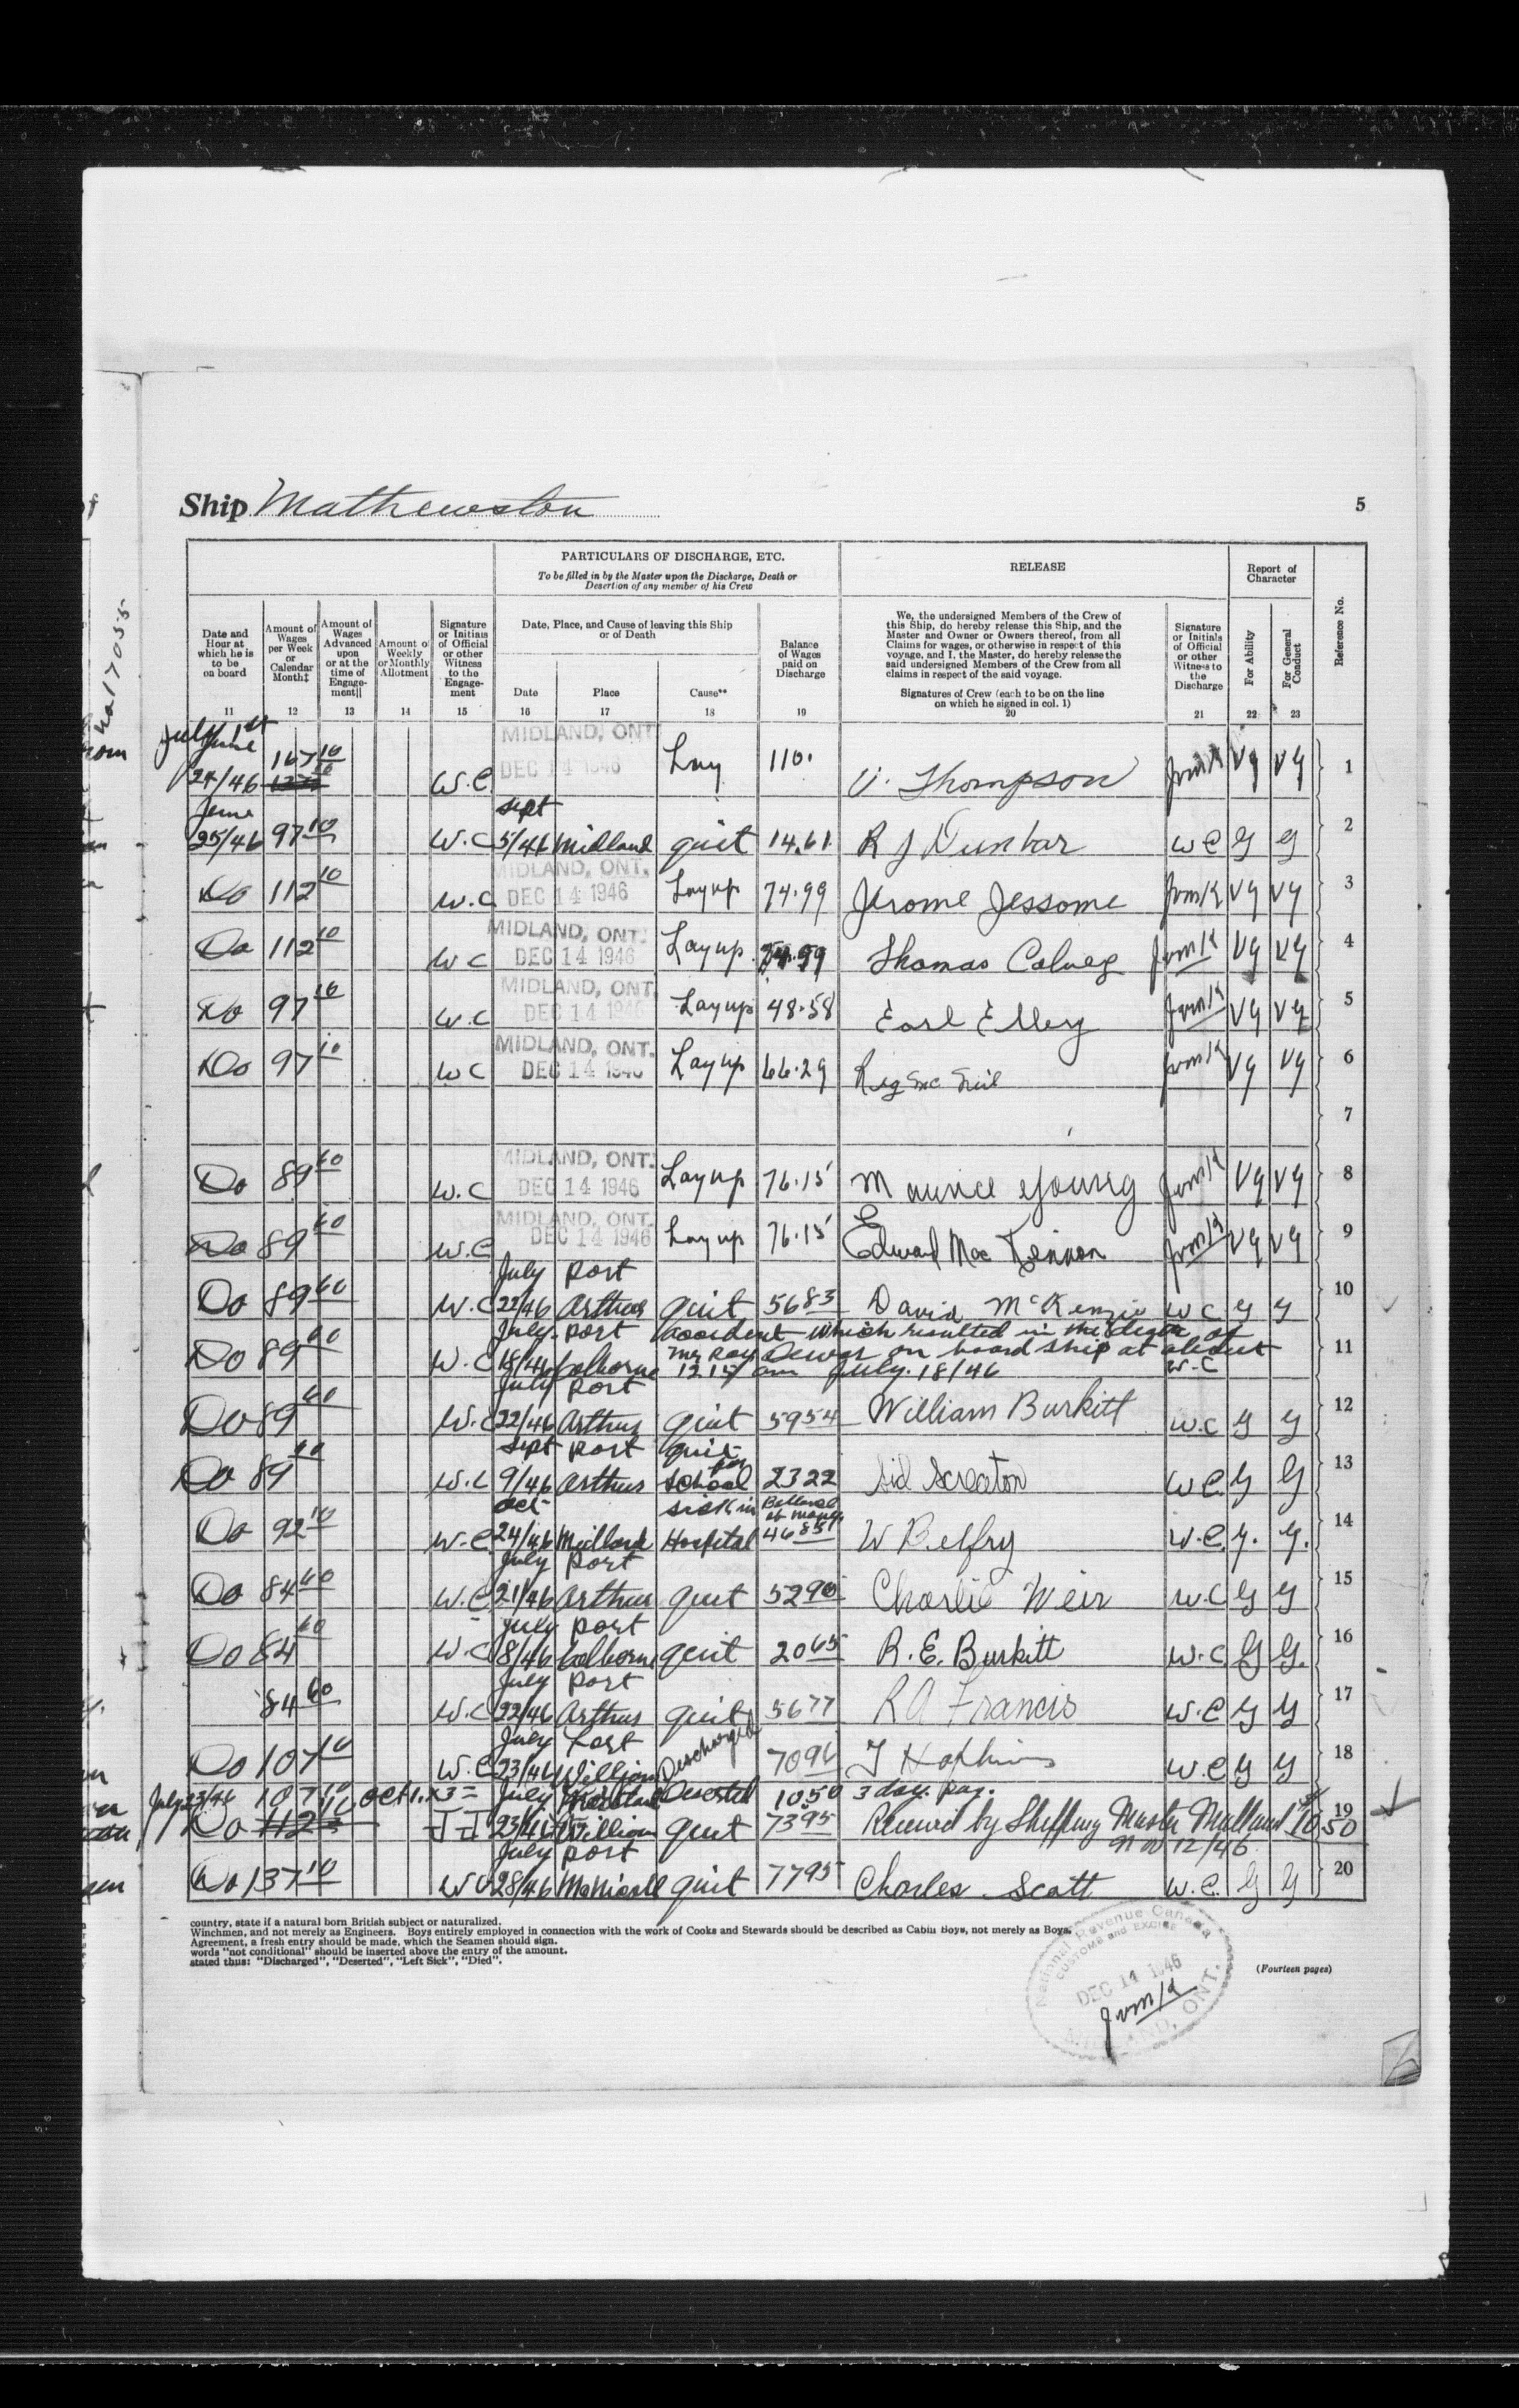 Ship Mathewston
5
PARTICULARS OF DISCHARGE, ETC.
To be filled in by the Master upon the Discharge, Death or
Desertion of any member of his Crew
RELEASE
Report of
Character
Reference No.
Date and
Hour at
which he is
to be
on board
Amount of
Wages
per Week
or
Calendar
Month‡
Amount of
Wages
Advanced
upon
or at the
time of
Engage-
ment||
Amount of
Weekly
or Monthly
Allotment
Signature
or Initials
of Official
or other
Witness
to the
Engage-
ment
Date, Place, and Cause of leaving this Ship
or of Death
Date
Place
Cause**
Balance
of Wages
paid on
Discharge
We, the undersigned Members of the Crew of
this Ship, do hereby release this Ship, and the
Master and Owner or Owners thereof, from all
Claims for wages, or otherwise in respect of this
voyage, and I, the Master, do hereby release the
said undersigned Members of the Crew from all
claims in respect of the said voyage.
Signatures of Crew (each to be on the line
on which he signed in col. 1)
Signature
or Initials
of Official
or other
Witness to
the
Discharge
For Ability
For General
Conduct
11 12 13 14 15 16 17 18 19 20 21 22 23
June 24/46 167 10 W.C MIDLAND, ONT. DEC 14 1946 Lay 110. V. Thompson Vg Vg 1
June 25/46 97 10 W.C Sept 5/46 Midland quit 14.61 R J Dunbar W C G G 2
Do 112 10 W.C MIDLAND, ONT. DEC 14 1946 Layup 74.99 Jerome Jessome Vg Vg 3
Do 112 10 W C MIDLAND, ONT. DEC 14 1946 Layup Thomas Vg Vg 4
Do 97 10 W.C MIDLAND, ONT. DEC 14 1946 Layup 48.58 Earl Elley Vg Vg 5
Do 97 10 W C MIDLAND, ONT. DEC 14 1946 Layup 66.29 Reg Vg Vg 6
7
Do 89 60 W.C MIDLAND, ONT. DEC 14 1946 Layup 76.15 Maurice Young Vg Vg 8
Do 89 60 W.C MIDLAND, ONT. DEC 14 1946 Layup 76.15 Edward Mac Vg Vg 9
Do 89 60 W.C July 22/46 Port Arthur quit 56 83 David McKenzie W C G G 10
Do 89 60 W.C July 18/46 Port Colborne accident which resulted in the death of
Mr Ray Dewar on board ship at about
12 15 am July. 18/46 W-C 11
Do 89 60 W.C July 22/46 Port Arthur quit 59 54 William Burkitt W.C G G 12
Do 89 60 W.C Sept 9/46 Port Arthur quit for school 23 22 Sid Screaton W C. G G 13
Do 92 10 W.C Oct 24/46 Midland sick in Hospital 46 85 W Belfry W.C G. G. 14
Do 84 60 W.C July 21/46 Port Arthur quit 52 90 Charlie Weir W.C G G 15
Do 84 60 W.C July 8/46 Port Colborne quit 20 65 R.E. Burkitt W.C G G. 16
84 60 W.C July 22/46 Port Arthur quit 56 77 R A Francis W.C G G 17
Do 107 10 W.C July 23/46 Fort William Discharged 70 96 J Hopkins W.C G G 18
July 23/46 107 10 Deserted 10 50 3 day. pay.
Do 112 23/46 William quit 73 95 Received by Shipping Master Midland 10 50 19
Nov 12/46
Do 137 10 W C July 28/46 Port McNicoll quit 77 95 Charles Scott W.C. G G 20
country, state if a natural born British subject or naturalized.
Winchmen, and not merely as Engineers. Boys entirely employed in connection with the work of Cooks and Stewards should be described as Cabin Boys, not merely as Boys.
Agreement, a fresh entry should be made, which the Seamen should sign.
words "not conditional" should be inserted above the entry of the amount.
stated thus: "Discharged", "Deserted", "Left Sick", "Died".
(Fourteen pages)
National Revenue Canada
CUSTOMS and EXCISE
DEC 14 1946
MIDLAND, ONT.